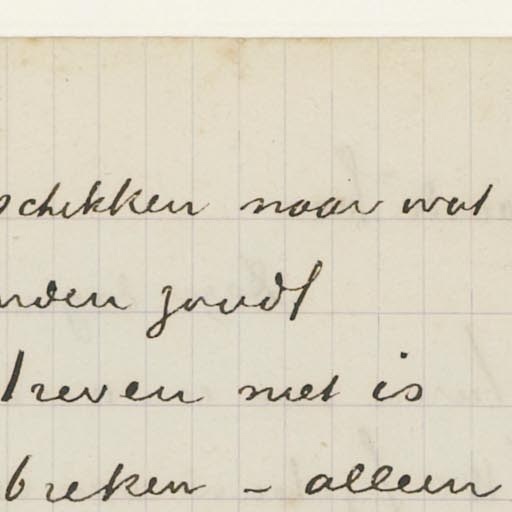 schikken naar wat
nden zoudt
dreven niet is
breken - alleen